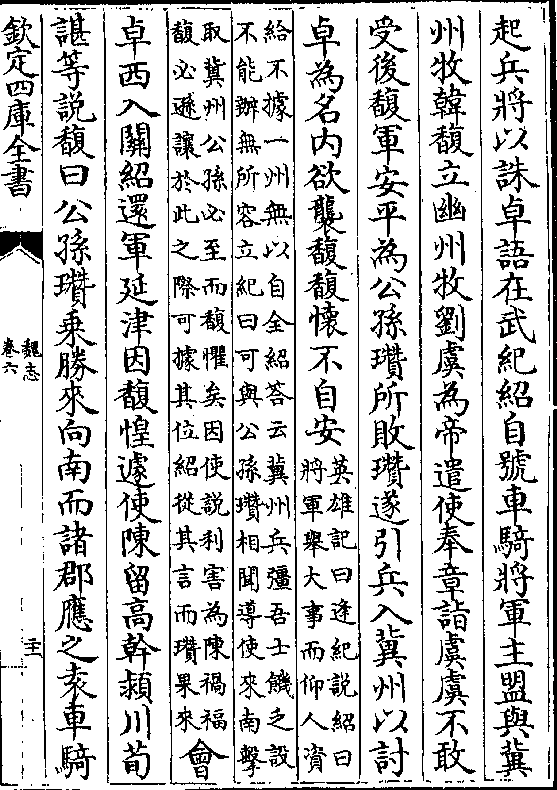 起兵將以誅卓語在武紀紹自號車騎將軍主盟與冀
州牧韓馥立幽州牧劉虞為帝遣使奉章詣虞虞不敢
受後馥軍安平為公孫瓚所敗瓚遂引兵入冀州以討
卓為名内欲襲馥馥懷不自安
英雄記曰逄紀說紹曰
將軍舉大事而仰人資
給不據一州無以自全紹答云冀州兵彊吾士饑乏設
不能辦無所容立紀曰可與公孫瓚相聞導使來南擊
取冀州公孫必至而馥懼矣因使說利害為陳禍福
馥必遜讓於此之際可據其位紹從其言而瓚果來
會
卓西入關紹還軍延津因馥惶遽使陳留高幹潁川荀
諶等說馥曰公孫瓚乗勝來向南而諸郡應之袁車騎
欽定四庫全書
魏志
卷六